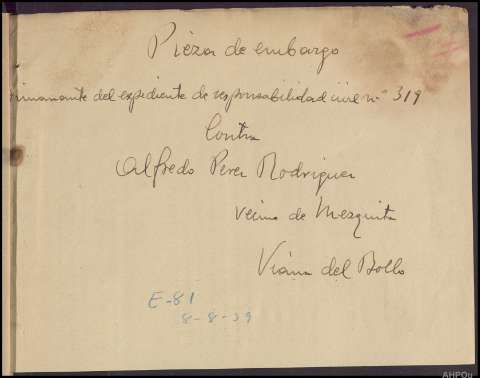 Pieza de embargo
dimanante del expediente de responsabilidad civil nº 319
Contra
Alfredo Perez Rodriguez
vecino de Mezquita
Viana del Bollo
E-81
8-8-39
AHPOu